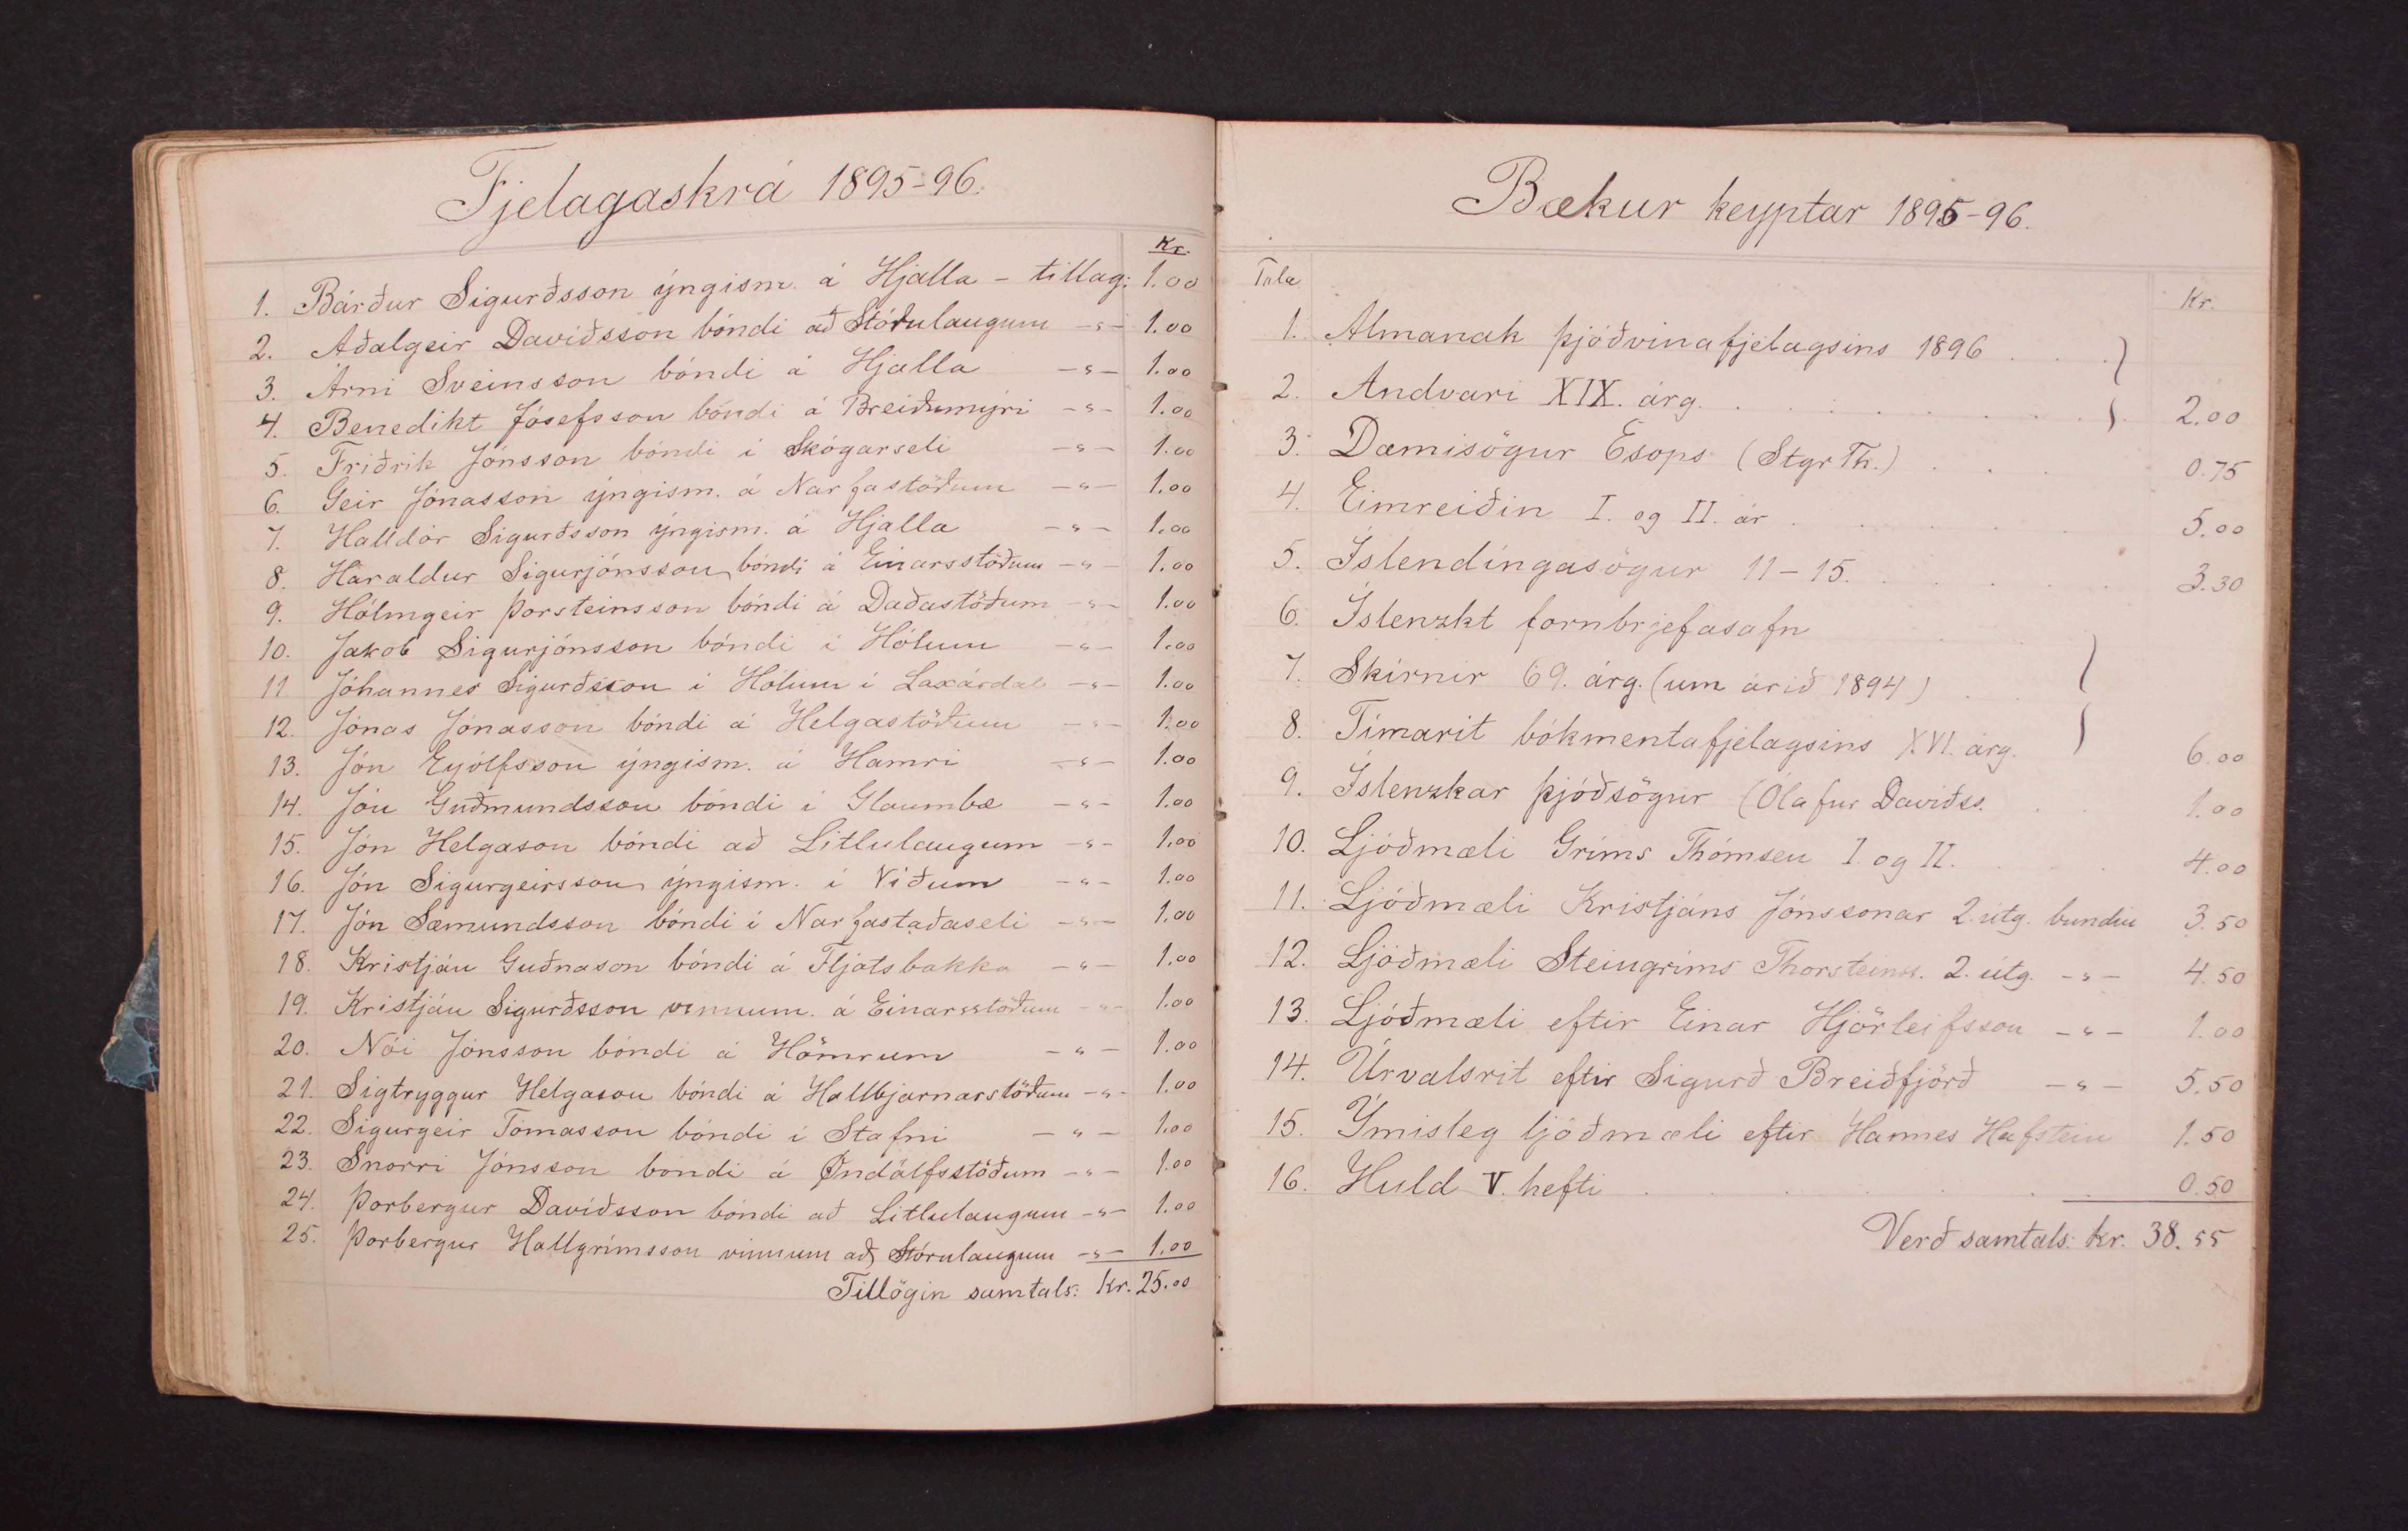 Fjelagaskrá 1895-96.
Kr.
1. Bárður Sigurðsson yngism. á Hjalla - tillag: 1.00
2. Aðalgeir Davíðsson bóndi að Stórulaugum -"- 1.00
3. Árni Sveinsson bóndi á Hjalla -"- 1.00
4. Benedikt Jósefsson bóndi á Breiðumýri -"- 1.00
5. Friðrik Jónsson bóndi í Skógarseli -"- 1.00
6. Geir Jónasson yngism. á Narfastöðum -"- 1.00
7. Halldór Sigurðsson yngism. á Hjalla -"- 1.00
8. Haraldur Sigurjónsson bóndi á Einarsstöðum -"- 1.00
9. Hólmgeir Þorsteinsson bóndi á Daðastöðum -"- 1.00
10. Jakob Sigurjónsson bóndi í Hólum -"- 1.00
11 Jóhannes Sigurðsson í Hólum í Laxárdal -"- 1.00
12. Jónas Jónasson bóndi á Helgastöðum -"- 1.00
13. Jón Eyólfsson yngism. á Hamri -"- 1.00
14. Jón Guðmundsson bóndi í Glaumbæ -"- 1.00
15. Jón Helgason bóndi að Litlulaugum -"- 1.00
16. Jón Sigurgeirsson yngism. í Víðum -"- 1.00
17. Jón Sæmundsson bóndi í Narfastaðaseli -"- 1.00
18. Kristján Guðnason bóndi á Fljótsbakka -"- 1.00
19. Kristján Sigurðsson vinnum. á Einarsstöðum -"- 1.00
20. Nói Jónsson bóndi á Hömrum -"- 1.00
21. Sigtryggur Helgason bóndi á Hallbjarnarstöðum -"- 1.00
22. Sigurgeir Tómasson bóndi í Stafni -"- 1.00
23. Snorri Jónsson bóndi á Øndólfsstöðum -"- 1.00
24. Þorbergur Davíðsson bóndi að Litlulaugum -"- 1.00
25. Þorbergur Hallgrímsson vinnum að Stórulaugum -"- 1.00
Tillögin samtals: Kr. 25.00
Bækur keyptar 1895-96.
Tala Kr.
1. Almanak þjóðvinafjelagsins 1896 . . . }
2. Andvari XIX. árg. . . . . . . . . } 2.00
3. Dæmisögur Esops (Stgr Th.) . . . 0.75
4. Eimreiðin I. og II. ár . . . . . 5.00
5. Íslendingasögur 11-15. . . . . . 3.30
6. Íslenzkt fornbrjefasafn
7. Skírnir 69. árg. (um árið 1894) . . }
8. Tímarit bókmentafjelagsins XVI. árg. } 6.00
9. Íslenzkar þjóðsögur (Ólafur Davíðss. . . 1.00
10. Ljóðmæli Gríms Thómsen I. og II. . . . 4.00
11. Ljóðmæli Kristjáns Jónssonar 2. útg. bundin 3.50
12. Ljóðmæli Steingríms Thorsteinss. 2. útg. -"- 4.50
13. Ljóðmæli eftir Einar Hjörleifsson -"- 1.00
14. Úrvalsrit eftir Sigurð Breiðfjörð -"- 5.50
15. Ýmisleg ljóðmæli eftir Hannes Hafstein 1.50
16. Huld V. hefti . . . . . . 0.50
Verð samtals: kr. 38.55